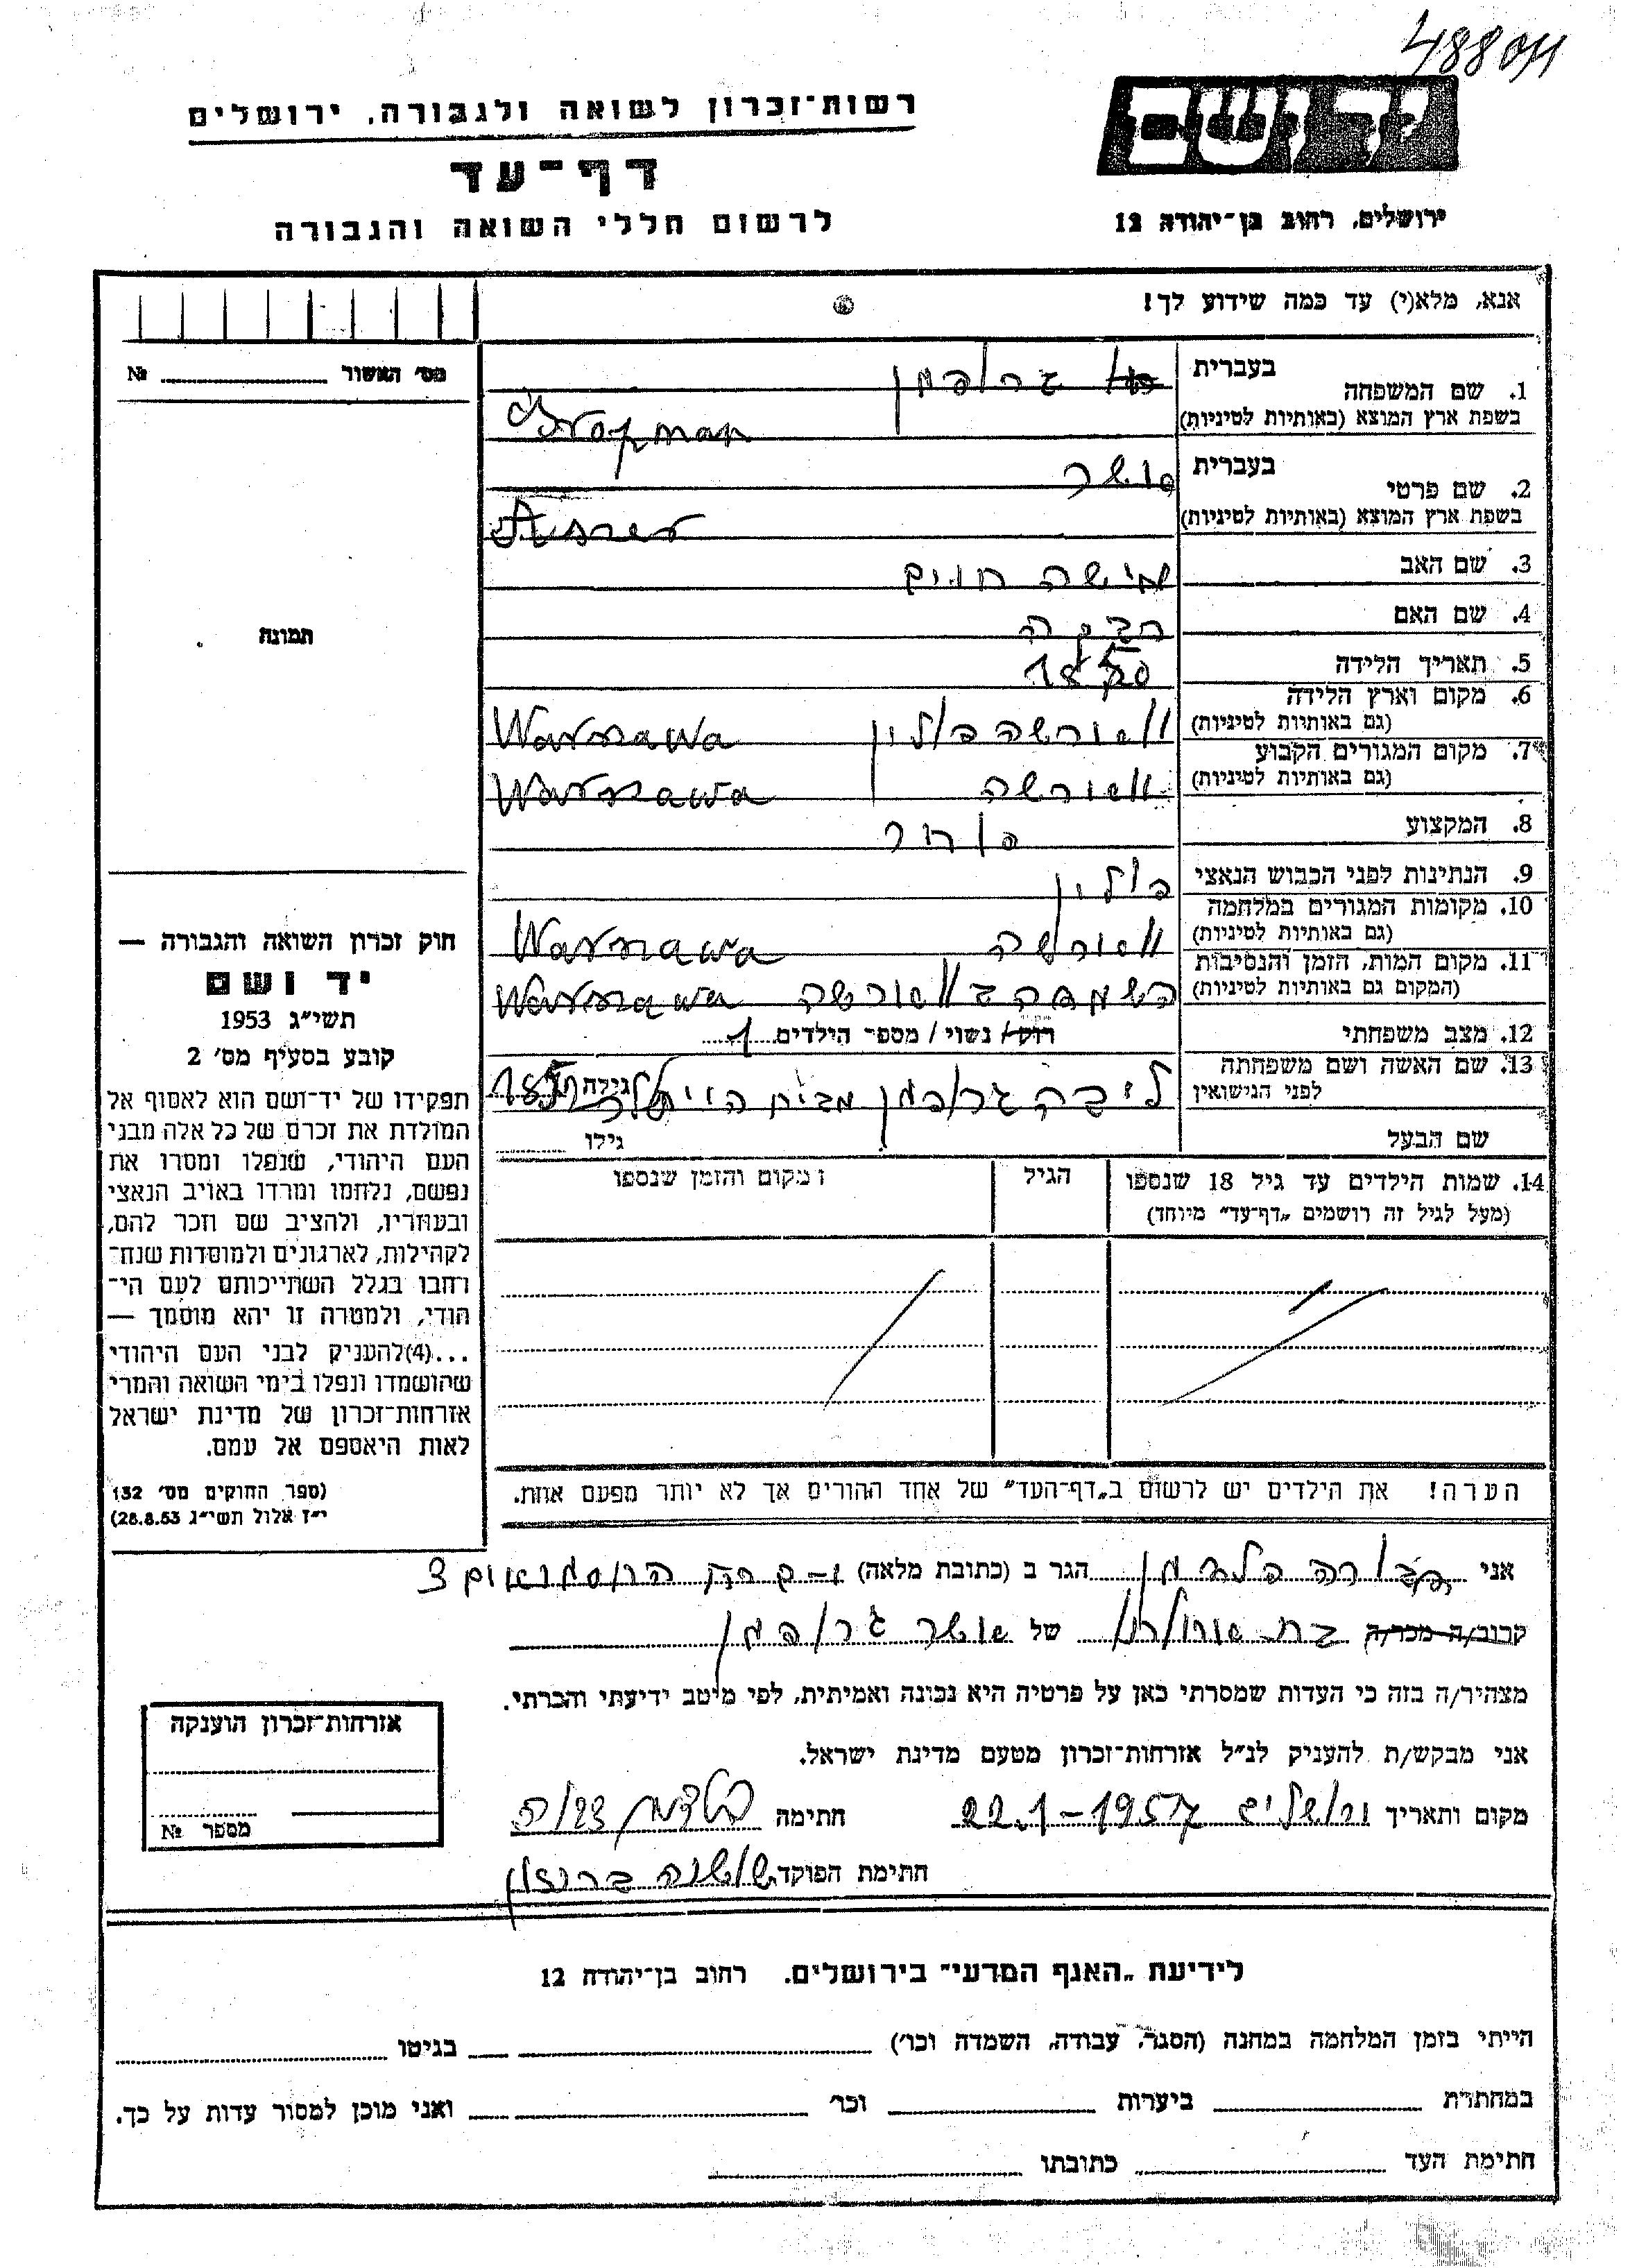 488011
רשות־זכרון לשואה ולגבורה, ירושלים
יד ושם
דף־עד
לרשום חללי השואה והגבורה
ירושלים, רחוב בן־יהודה 12
אנא, מלא(י) עד כמה שידוע לך!
מס׳ האשור №
1. שם המשפחה בעברית גרופמן
בשפת ארץ המוצא (באותיות לטיניות) Gropman
2. שם פרטי בעברית אשר
בשפת ארץ המוצא (באותיות לטיניות) Asser
3. שם האב משה חיים
4. שם האם רבקה
5. תאריך הלידה 1850
6. מקום וארץ הלידה (גם באותיות לטיניות) וורשה פולין Warszawa
7. מקום המגורים הקבוע (גם באותיות לטיניות) וורשה Warszawa
8. המקצוע סוחר
9. הנתינות לפני הכבוש הנאצי פולין
10. מקומות המגורים במלחמה (גם באותיות לטיניות) וורשה Warszawa
11. מקום המות, הזמן והנסיבות (המקום גם באותיות לטיניות) בוורשה Warszawa
12. מצב משפחתי רוק/ נשוי/ מספר הילדים 1
13. שם האשה ושם משפחתה לפני הנישואין ליבה גרופמן מבית גילה
שם הבעל גילו
14. שמות הילדים עד גיל 18 שנספו
(מעל לגיל זה רושמים „דף־עד״ מיוחד)
הגיל
מקום והזמן שנספו
תמונה
חוק זכרון השואה והגבורה —
יד ושם
תשי״ג 1953
קובע בסעיף מס׳ 2
תפקידו של יד־ושם הוא לאסוף אל
המולדת את זכרם של כל אלה מבני
העם היהודי, שנפלו ומסרו את
נפשם, נלחמו ומרדו באויב הנאצי
ובעוזריו, ולהציב שם וזכר להם,
לקהילות, לארגונים ולמוסדות שנח־
רחבו בגלל השתייכותם לעם הי־
הודי, ולמטרה זו יהא מוסמך —
...(4) להעניק לבני העם היהודי
שהושמדו ונפלו בימי השואה והמרי
אזרחות־זכרון של מדינת ישראל
לאות היאספם אל עמם.
(ספר החוקים מס׳ 132
י״ז אלול תשי״ג 28.8.53)
הערה! את הילדים יש לרשום ב„דף־העד״ של אחד ההורים אך לא יותר מפעם אחת.
אני הגר ב (כתובת מלאה) 3
קרוב/ה מכר/ה בת של אשר גרופמן
מצהיר/ה בזה כי העדות שמסרתי כאן על פרטיה היא נכונה ואמיתית, לפי מיטב ידיעתי והכרתי.
אני מבקש/ת להעניק לנ״ל אזרחות־זכרון מטעם מדינת ישראל.
מקום ותאריך ירושלים 22.1-1957 חתימה
חתימת הפוקד שושנה
אזרחות־זכרון הוענקה
מספר №
לידיעת „האגף המדעי״ בירושלים, רחוב בן־יהודה 12
הייתי בזמן המלחמה במחנה (הסגר, עבודה, השמדה וכו׳) בגיטו
במחתרת ביערות וכו׳ ואני מוכן למסור עדות על כך.
חתימת העד כתובתו